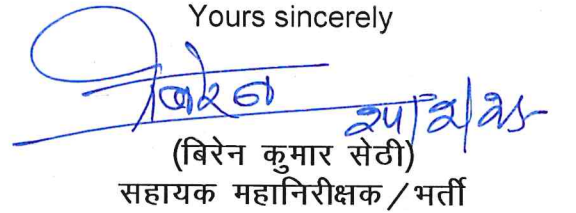 Yours sincerely
बिरेन
(बिरेन कुमार सेठी)
सहायक महानिरीक्षक / भर्ती